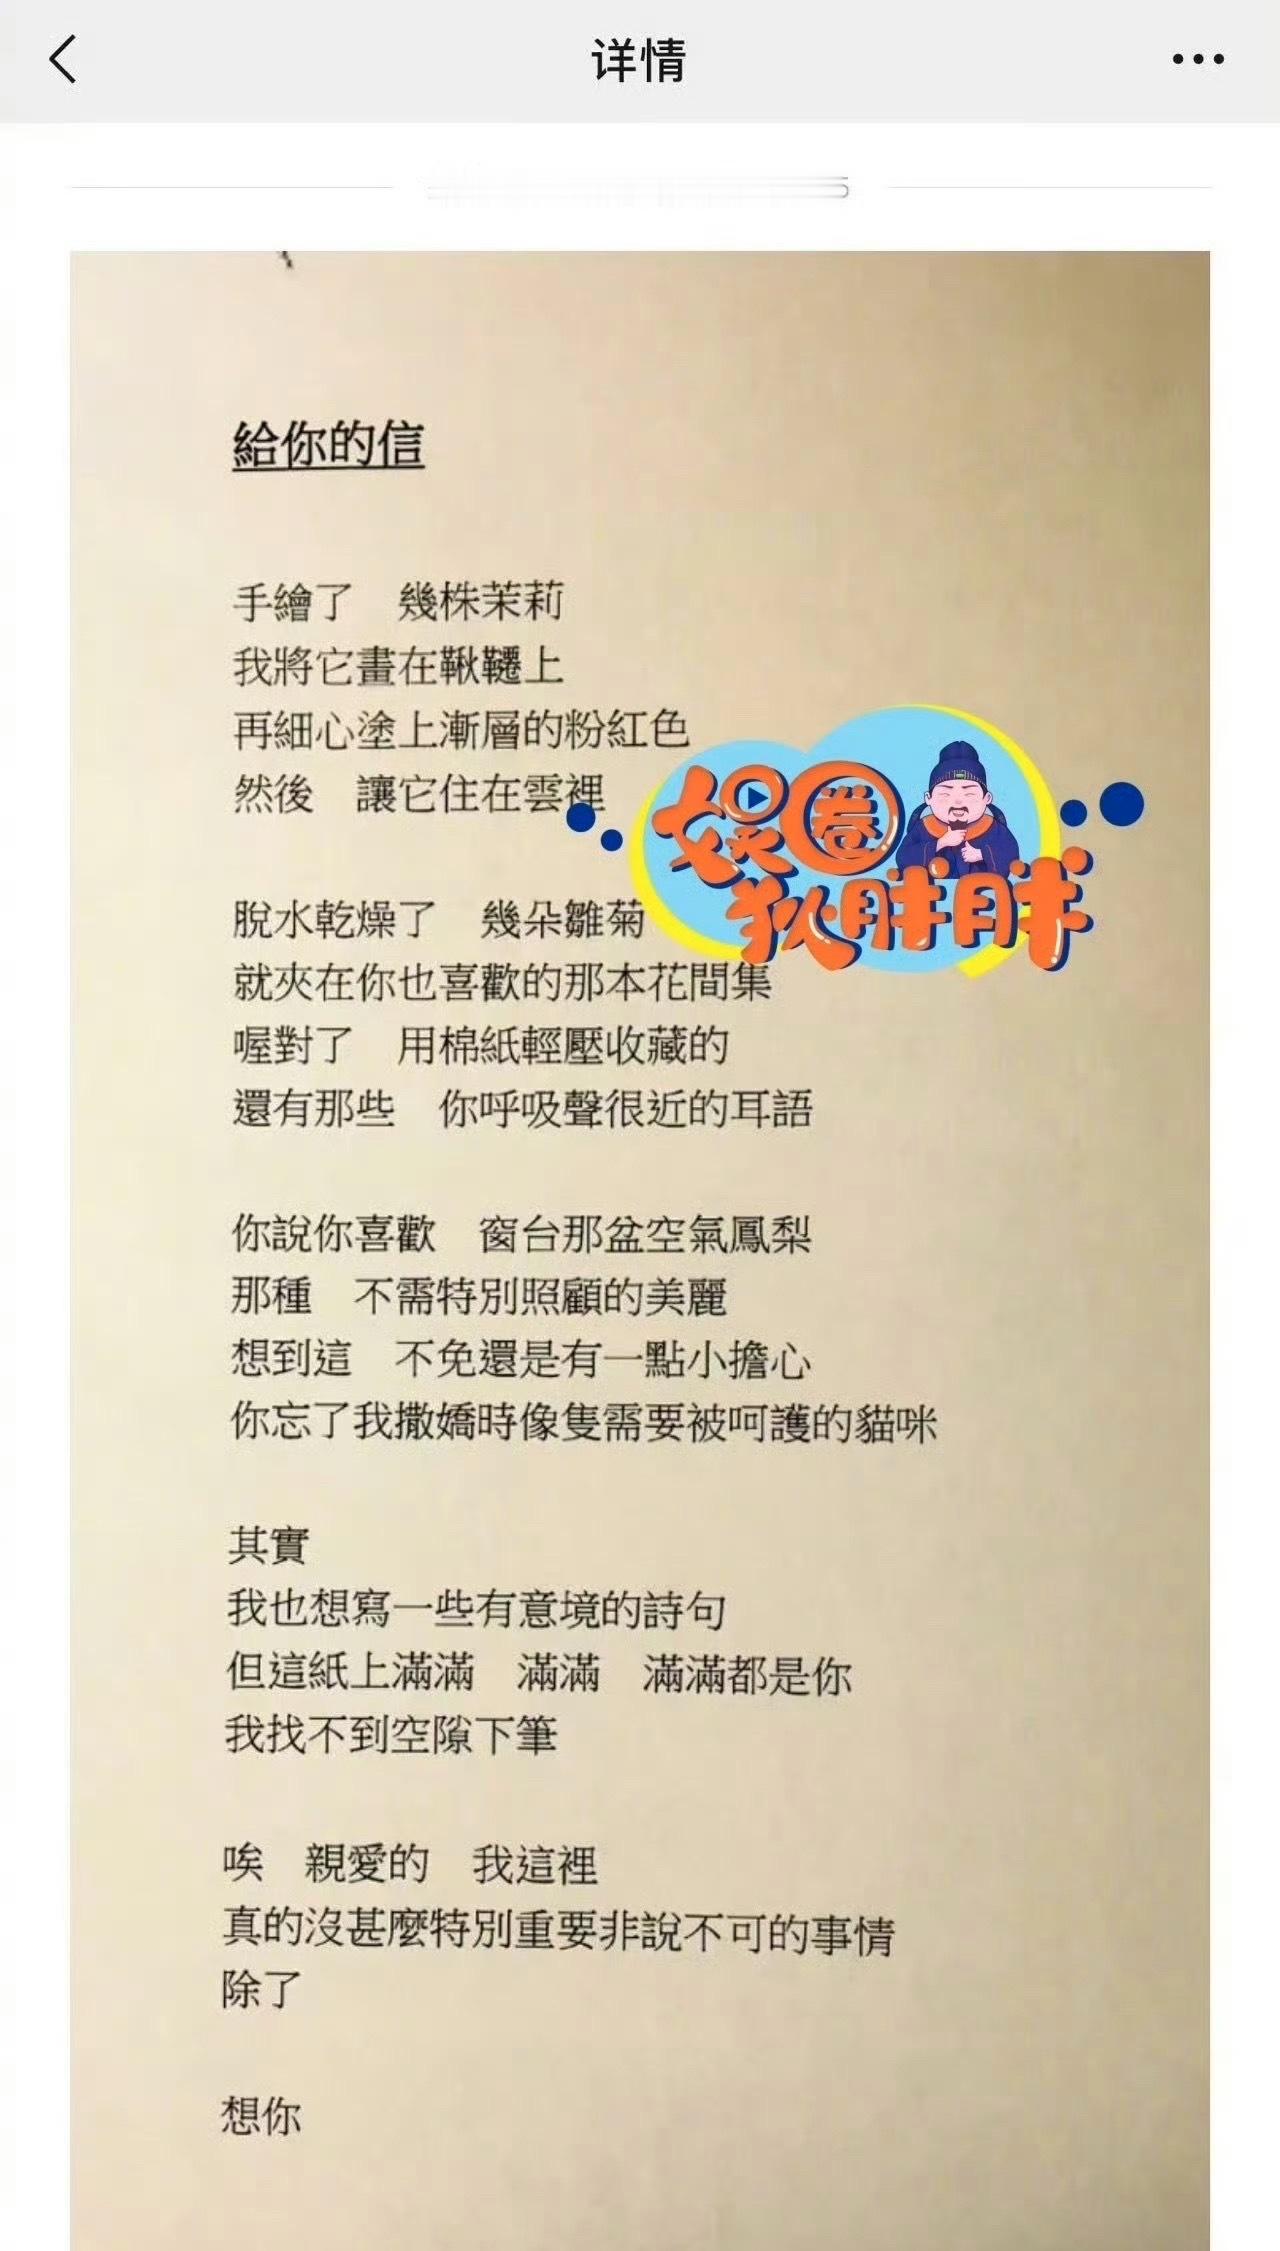 详情
給你的信
手繪了　幾株茉莉
我將它畫在鞦韆上
再細心塗上漸層的粉紅色
然後　讓它住在雲裡
娱圈
狄胖胖
脫水乾燥了　幾朵雛菊
就夾在你也喜歡的那本花間集
喔對了　用棉紙輕壓收藏的
還有那些　你呼吸聲很近的耳語
你說你喜歡　窗台那盆空氣鳳梨
那種　不需特別照顧的美麗
想到這　不免還是有一點小擔心
你忘了我撒嬌時像隻需要被呵護的貓咪
其實
我也想寫一些有意境的詩句
但這紙上滿滿　滿滿　滿滿都是你
我找不到空隙下筆
唉　親愛的　我這裡
真的沒甚麼特別重要非說不可的事情
除了
想你